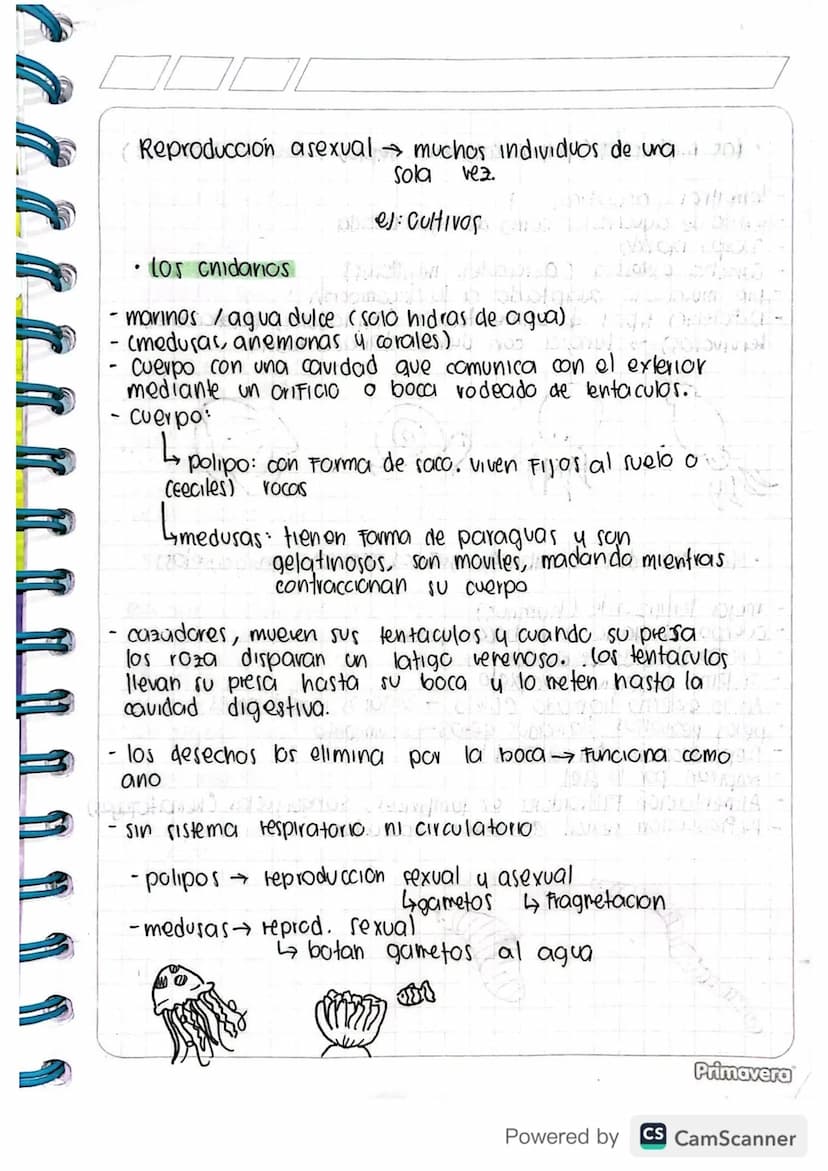 Reproducción asexual → muchos individuos de una
sola vez.
ej: cultivos
• los cnidarios
- marinos / agua dulce (solo hidras de agua)
- (medusas, anemonas y corales)
- cuerpo con una cavidad que comunica con el exterior
mediante un orificio o boca rodeado de tentaculos.
- cuerpo:
↳ polipo: con forma de saco. viven fijos al suelo o
(ceciles) rocas
↳ medusas: tienen forma de paraguas y son
gelatinosos, son moviles, madando mientras
contraccionan su cuerpo
- cazadores, mueven sus tentaculos y cuando su presa
los roza disparan un latigo venenoso. los tentaculos
llevan su presa hasta su boca y lo meten hasta la
cavidad digestiva.
- los desechos los elimina por la boca → funciona como
ano
- sin sistema respiratorio ni circulatorio
- polipos → reproducción sexual y asexual
↳ gametos ↳ fragretacion
- medusas → reprod. sexual
↳ botan gametos al agua
Primavera
Powered by CS CamScanner